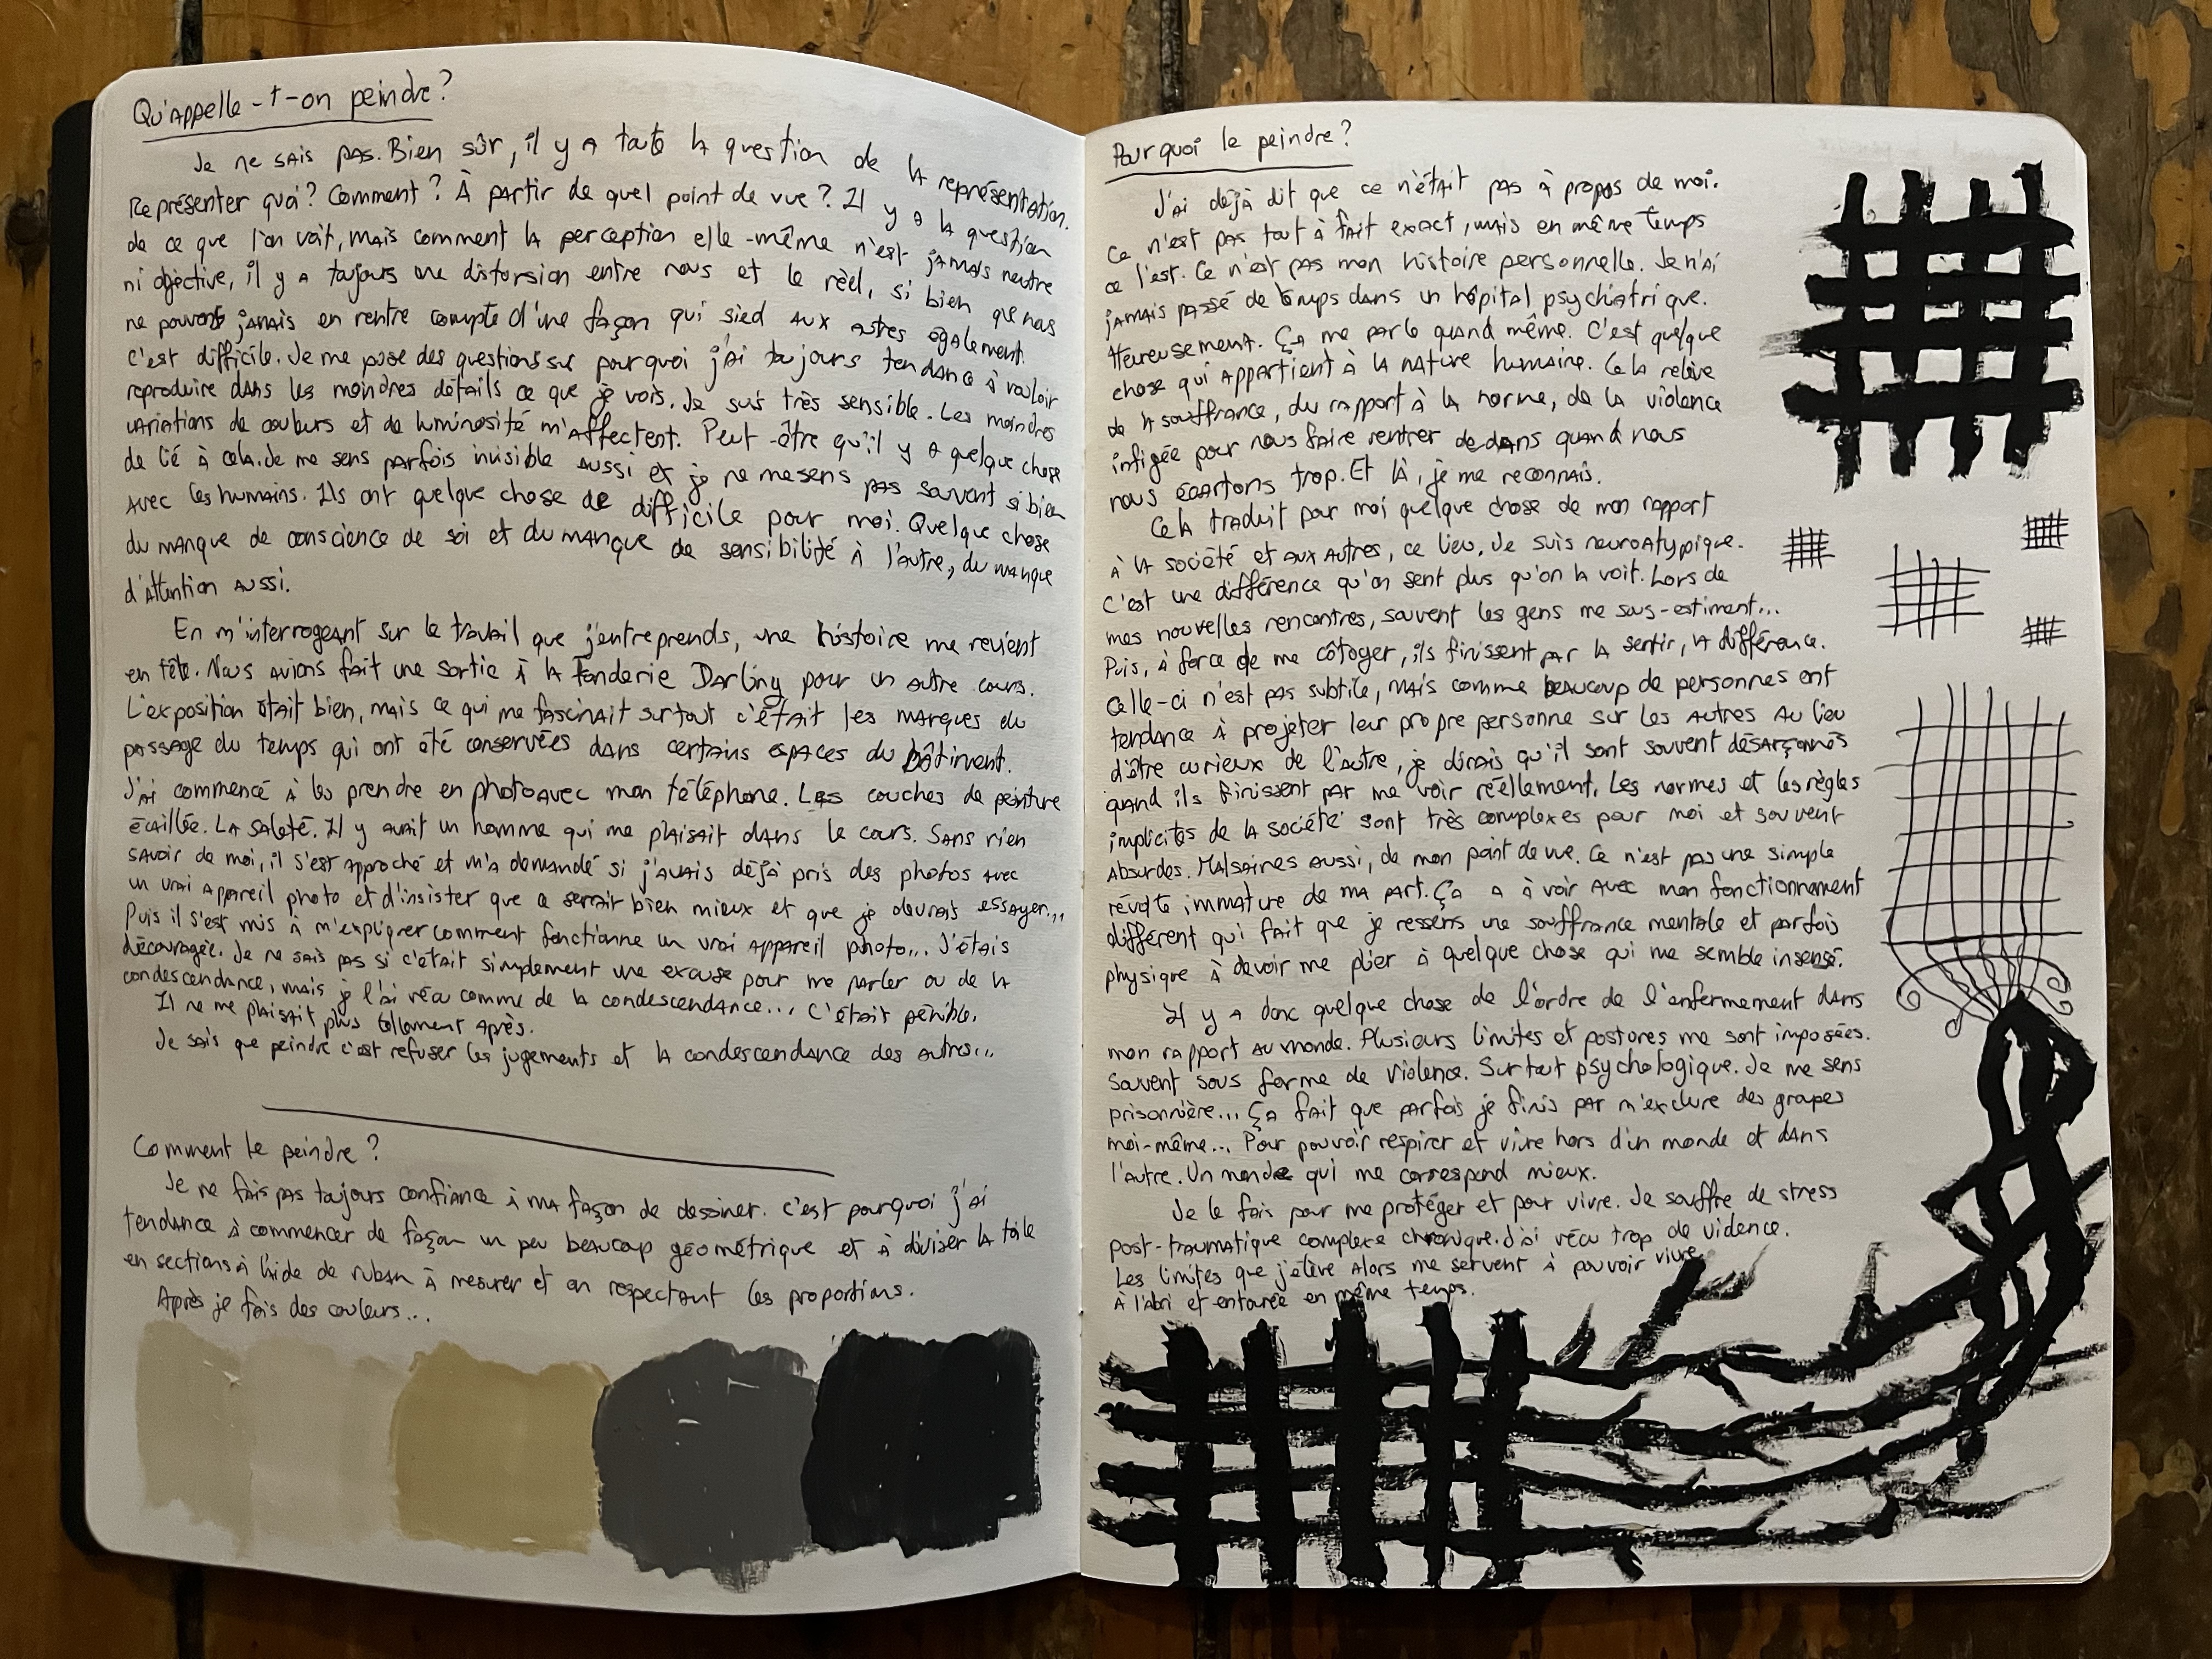 Qu'appelle-t-on peindre?
Je ne sais pas. Bien sûr, il y a toute la question de la représentation.
Représenter quoi? Comment? À partir de quel point de vue? Il y a la question
de ce que l'on voit, mais comment la perception elle-même n'est jamais neutre
ni objective, il y a toujours une distorsion entre nous et le réel, si bien que nous
ne pouvons jamais en rentre compte d'une façon qui sied aux autres également.
C'est difficile. Je me pose des questions sur pourquoi j'ai toujours tendance à vouloir
reproduire dans les moindres détails ce que je vois. Je suis très sensible. Les moindres
variations de couleurs et de luminosité m'affectent. Peut-être qu'il y a quelque chose
de lié à cela. Je me sens parfois invisible aussi et je ne me sens pas souvent si bien
avec les humains. Ils ont quelque chose de difficile pour moi. Quelque chose
du manque de conscience de soi et du manque de sensibilité à l'autre, du manque
d'attention aussi.
En m'interrogeant sur le travail que j'entreprends, une histoire me revient
en tête. Nous avions fait une sortie à la Fonderie Darling pour un autre cours.
L'exposition était bien, mais ce qui me fascinait surtout c'était les marques du
passage du temps qui ont été conservées dans certains espaces du bâtiment.
J'ai commencé à les prendre en photo avec mon téléphone. Les couches de peinture
écaillée. La saleté. Il y avait un homme qui me plaisait dans le cours. Sans rien
savoir de moi, il s'est approché et m'a demandé si j'avais déjà pris des photos avec
un vrai appareil photo et d'insister que ce serait bien mieux et que je devrais essayer...
Puis il s'est mis à m'expliquer comment fonctionne un vrai appareil photo... J'étais
découragée. Je ne sais pas si c'était simplement une excuse pour me parler ou de la
condescendance, mais je l'ai vécu comme de la condescendance... C'était pénible.
Il ne me plaisait plus tellement après.
Je sais que peindre c'est refuser les jugements et la condescendance des autres...
Comment le peindre?
Je ne fais pas toujours confiance à ma façon de dessiner. C'est pourquoi j'ai
tendance à commencer de façon un peu beaucoup géométrique et à diviser la toile
en sections à l'aide de ruban à mesurer et en respectant les proportions.
Après je fais des couleurs...
Pourquoi le peindre?
J'ai déjà dit que ce n'était pas à propos de moi.
Ce n'est pas tout à fait exact, mais en même temps
ce l'est. Ce n'est pas mon histoire personnelle. Je n'ai
jamais passé de temps dans un hôpital psychiatrique.
Heureusement. Ça me parle quand même. C'est quelque
chose qui appartient à la nature humaine. Cela relève
de la souffrance, du rapport à la norme, de la violence
infigée pour nous faire rentrer dedans quand nous
nous écartons trop. Et là, je me reconnais.
Cela traduit pour moi quelque chose de mon rapport
à la société et aux autres, ce lieu. Je suis neuroatypique.
C'est une différence qu'on sent plus qu'on la voit. Lors de
mes nouvelles rencontres, souvent les gens me sous-estiment...
Puis, à force de me côtoyer, ils finissent par la sentir, la différence.
Celle-ci n'est pas subtile, mais comme beaucoup de personnes ont
tendance à projeter leur propre personne sur les autres au lieu
d'être curieux de l'autre, je dirais qu'il sont souvent désarçonnés
quand ils finissent par me voir réellement. Les normes et les règles
implicites de la société sont très complexes pour moi et souvent
absurdes. Malsaines aussi, de mon point de vue. Ce n'est pas une simple
révolte immature de ma part. Ça a à voir avec mon fonctionnement
différent qui fait que je ressens une souffrance mentale et parfois
physique à devoir me plier à quelque chose qui me semble insensé.
Il y a donc quelque chose de l'ordre de l'enfermement dans
mon rapport au monde. Plusieurs limites et postures me sont imposées.
Souvent sous forme de violence. Surtout psychologique. Je me sens
prisonnière... Ça fait que parfois je finis par m'exclure des groupes
moi-même... Pour pouvoir respirer et vivre hors d'un monde et dans
l'autre. Un monde qui me correspond mieux.
Je le fais pour me protéger et pour vivre. Je souffre de stress
post-traumatique complexe chronique. J'ai vécu trop de violence.
Les limites que j'élève alors me servent à pouvoir vivre
à l'abri et entourée en même temps.